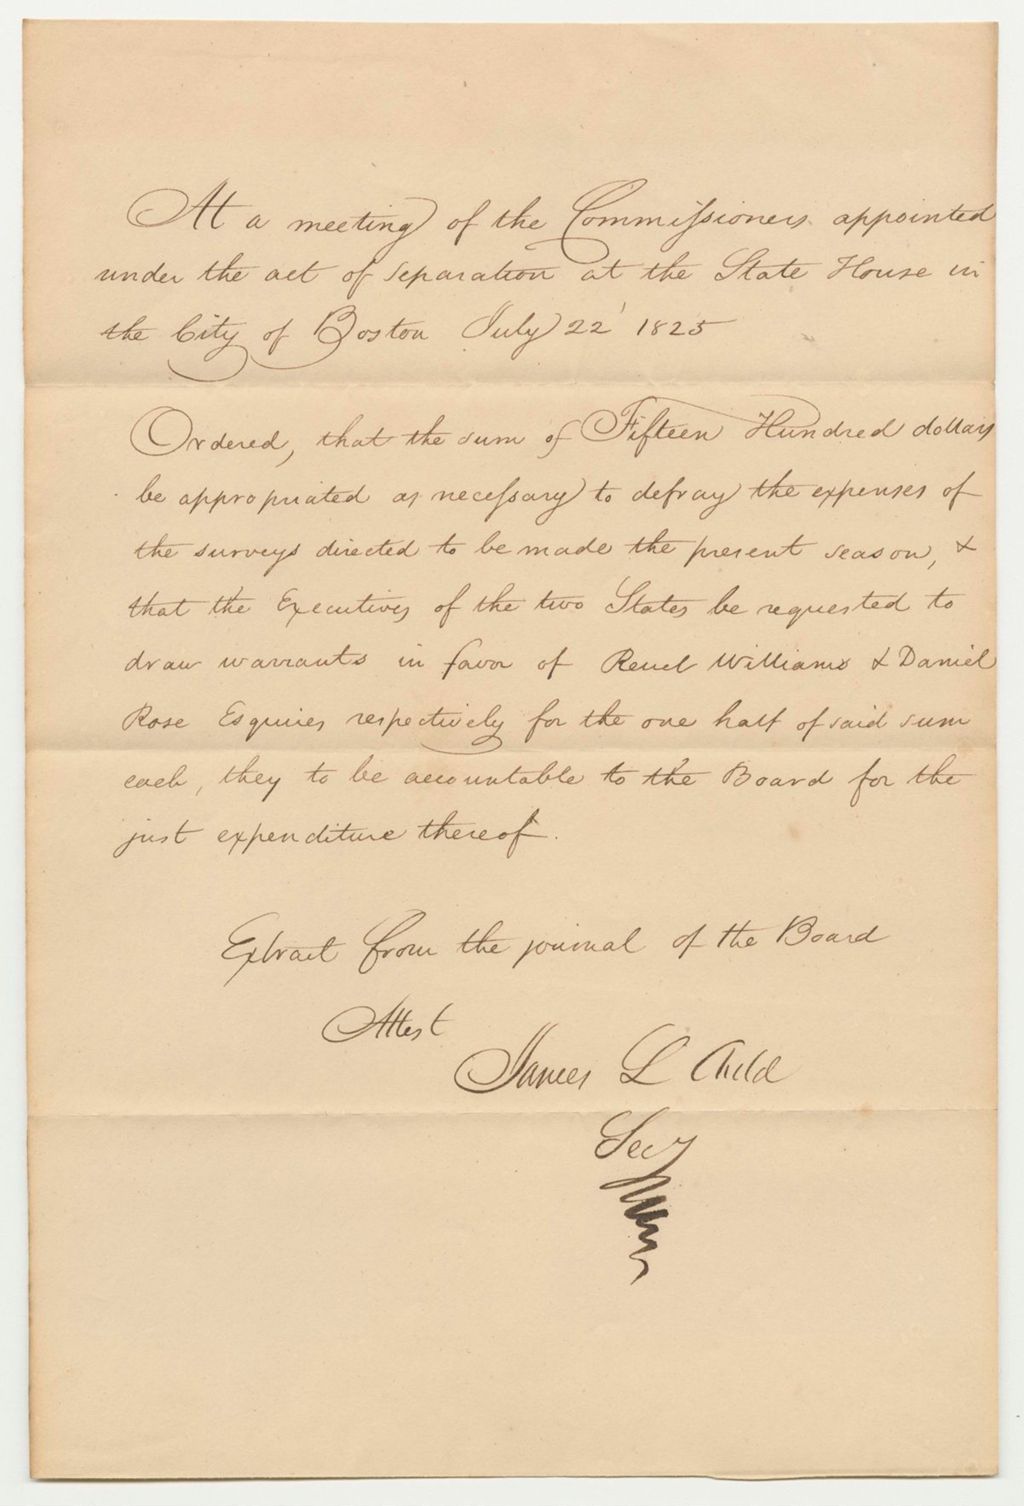 At a meeting of the Commissioners appointed
under the act of separation at the State House in
the City of Boston July 22' 1825
Ordered, that the sum of Fifteen Hundred dollars
be appropriated as necessary to defray the expenses of
the surveys directed to be made the present season, &
that the Executives of the two States be requested to
draw warrants in favor of Reuel Williams & Daniel
Rose Esquires respectively for the one half of said sum
each, they to be accountable to the Board for the
just expenditure thereof.
Extract from the journal of the Board
Attest
James L Child
Secy